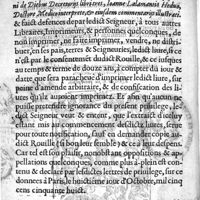 ni de Diebus Decretorijs libri tres, Ioanne Lalamantio Heduo,
Doctore Medico interprete, & eiusdem commentarijs illustrati.
& faict defences par ledict Seigneur, à tous autres
Libraires, Imprimeurs, & personnes quelconques, de
non imprimer, ne faire imprimer, vendre, ne distri-
buer, en ses païs, terres & Seigneuries, ledict liure, si ce
n'est par le consentement dudict Rouille, & ce iusques
au temps & terme de douze ans, à compter du iour &
date que sera paracheué d'imprimer ledict liure, sur
peine d'amende arbitraire, & de confiscation des li-
ures qu'ilz auroient imprimez. Et afin qu'aucun ne
puisse pretendre ignorance du present priuilege, le-
dict Seigneur veult, que l'extraict d'iceluy estant
mis au commencement desdicts liures, serue
de toute signification, comme la demande
dudict Rouille (si bon leur semble) & ce à leur despens.
Car tel est son plaisir, nonobstant oppositions & ap-
pellations quelconques, comme plus à plein est con-
tenu & declaré par lesdictes lettres de priuilege, sur ce
donnees à Paris, le huictieme iour d'Octobre, mil cinq
cens cinquante huict.